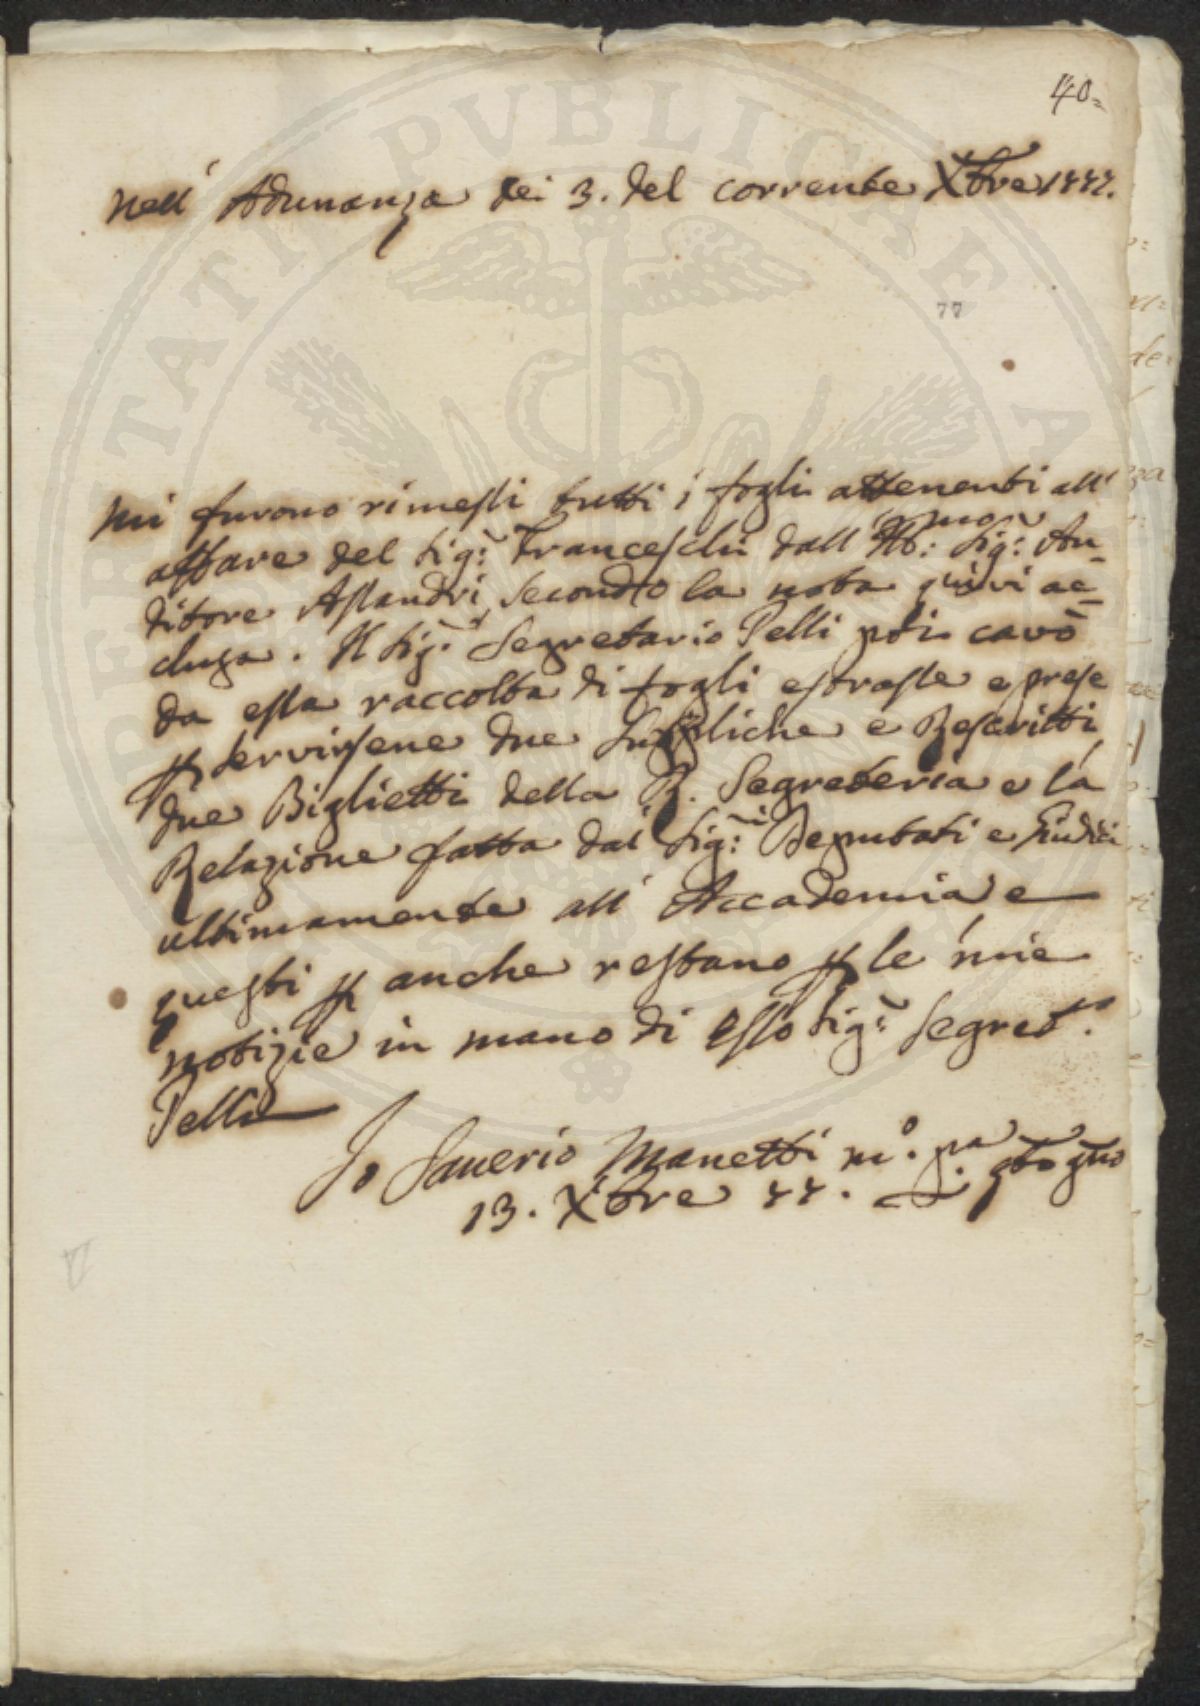 40=
Nell' Adunanza dei 3. del corrente Xbre 1777.
77
mi furono rimessi tutti i fogli attenenti all'
affare del Sig.r Franceschi dall' Sig.r Au-
ditore secondo la nota quivi ac-
clusa. Il Sig.r Segretario Pelli poi cavò
da essa raccolta di fogli estrasse e prese
p servirsene due Suppliche e Rescritti
due Biglietti della R. Segreteria e la
Relazione fatta dai Sig.ri Deputati e Giudici
ultimamente all' Accademia e
questi p anche restano p le mie
notizie in mano di esso Sig.r Segret.o
Pelli
Io Saverio Manetti m.o p.a
13. Xbre 77.
PUBLICAE